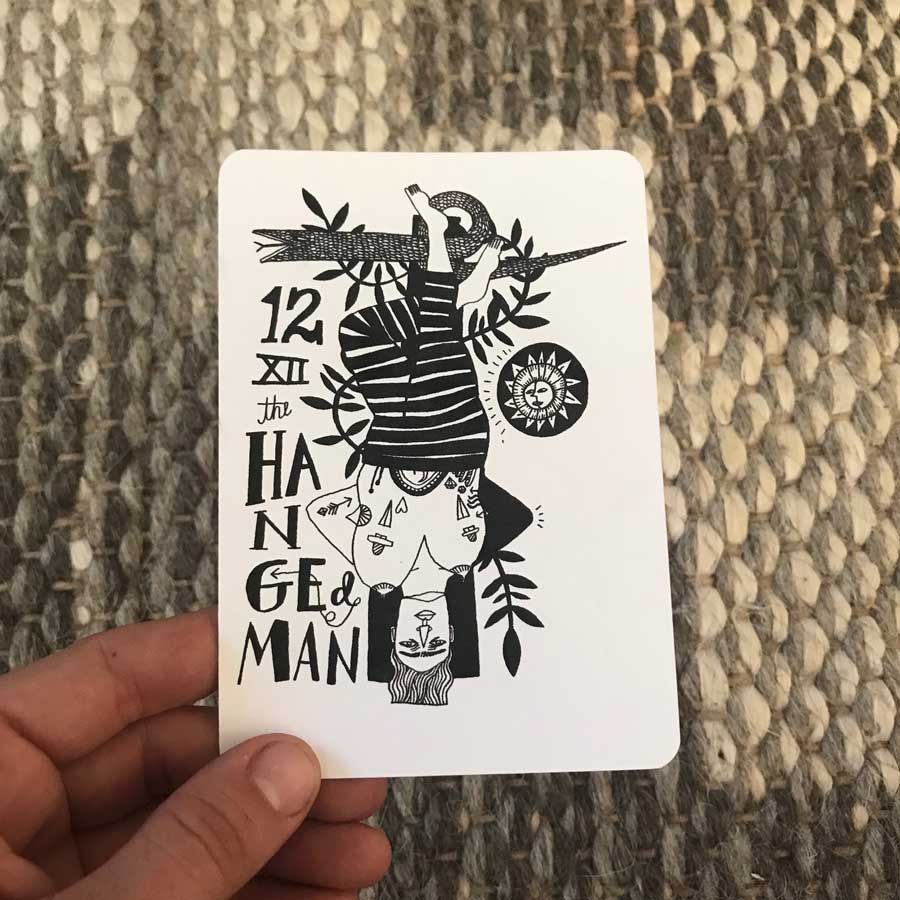 12
XII
the
HA
N
GEd
MAN